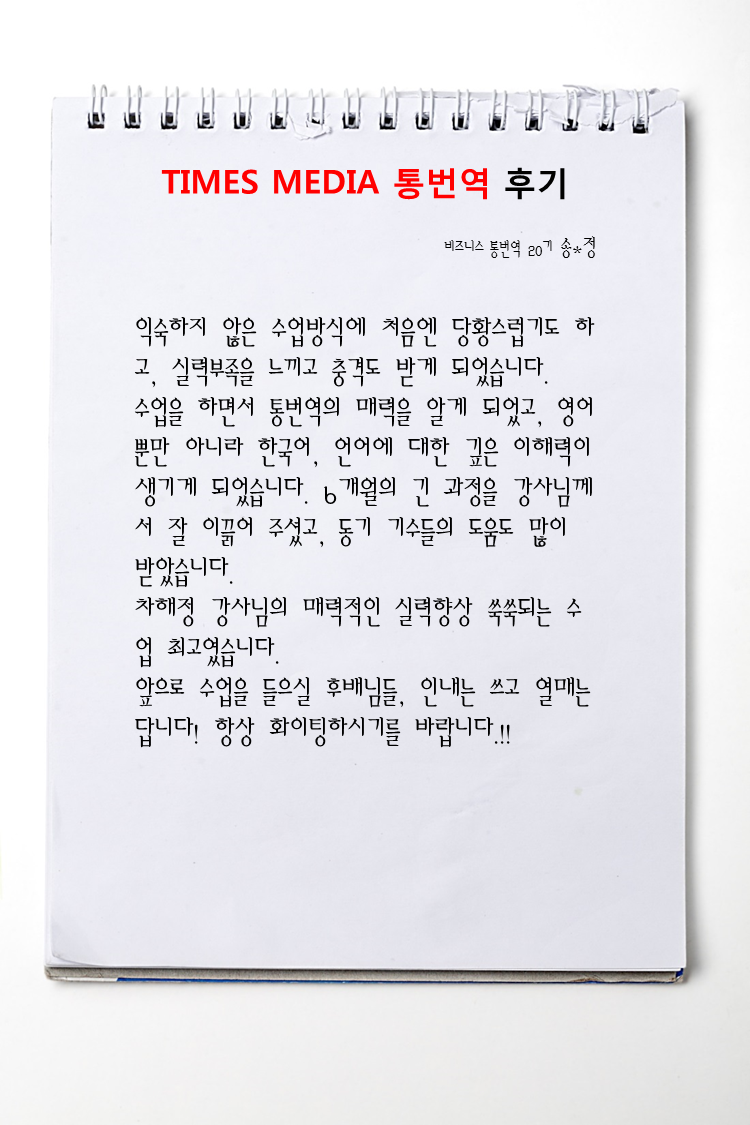 TIMES MEDIA 통번역 후기
비즈니스 통번역 20기 송*정
익숙하지 않은 수업방식에 처음엔 당황스럽기도 하
고, 실력부족을 느끼고 충격도 받게 되었습니다.
수업을 하면서 통번역의 매력을 알게 되었고, 영어
뿐만 아니라 한국어, 언어에 대한 깊은 이해력이
생기게 되었습니다. 6개월의 긴 과정을 강사님께
서 잘 이끌어 주셨고, 동기 기수들의 도움도 많이
받았습니다.
차해정 강사님의 매력적인 실력향상 쑥쑥되는 수
업 최고였습니다.
앞으로 수업을 들으실 후배님들, 인내는 쓰고 열매는
답니다! 항상 화이팅하시기를 바랍니다!!!